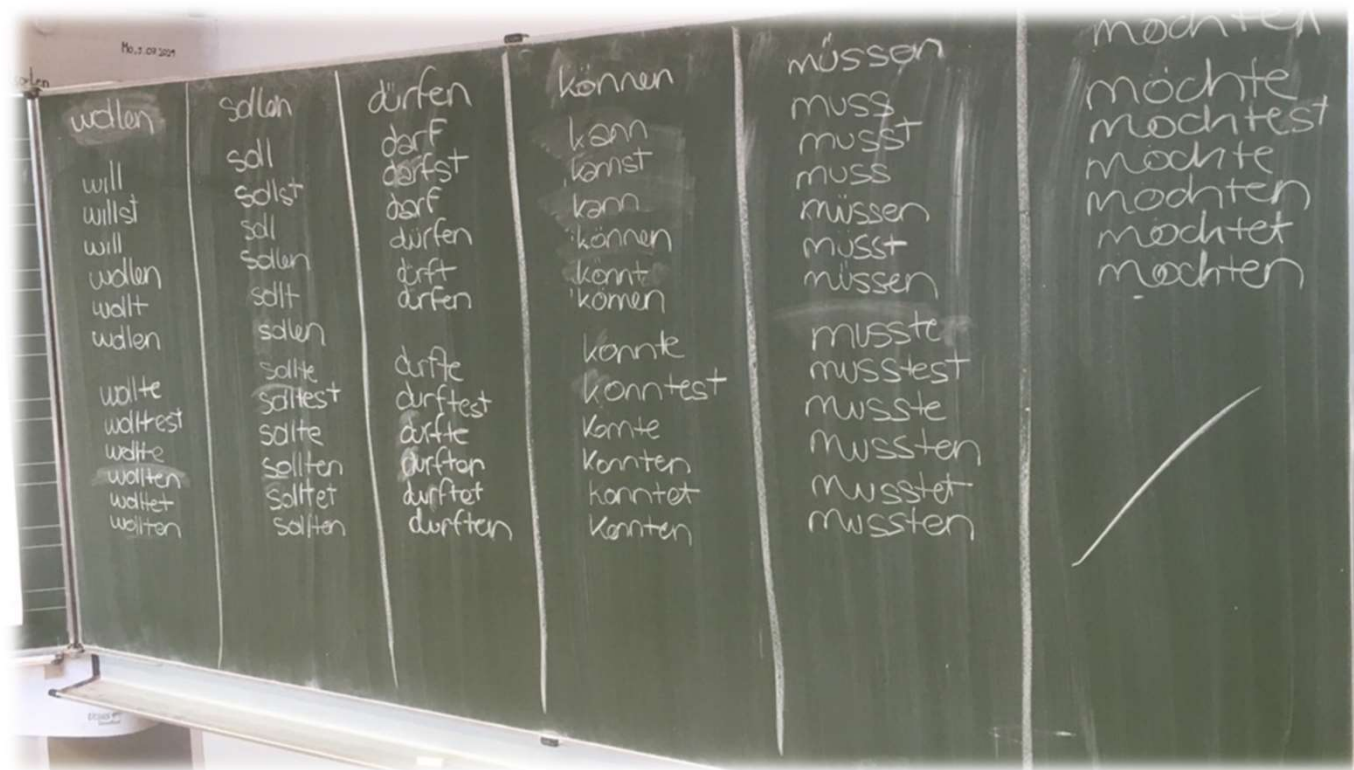 Mo.5.07.2021
wollen
will
willst
will
wollen
wollt
wollen
wollte
wolltest
wollte
wollten
wolltet
wollten
sollen
soll
sollst
soll
sollen
sollt
sollen
sollte
solltest
sollte
sollten
solltet
sollten
dürfen
darf
darfst
darf
dürfen
dürft
dürfen
durfte
durftest
durfte
durften
durftet
durften
können
kann
kannst
kann
können
könnt
können
konnte
konntest
konnte
konnten
konntet
konnten
müssen
muss
musst
muss
müssen
müsst
müssen
musste
musstest
musste
mussten
musstet
mussten
möchten
möchte
möchtest
möchte
möchten
möchtet
möchten